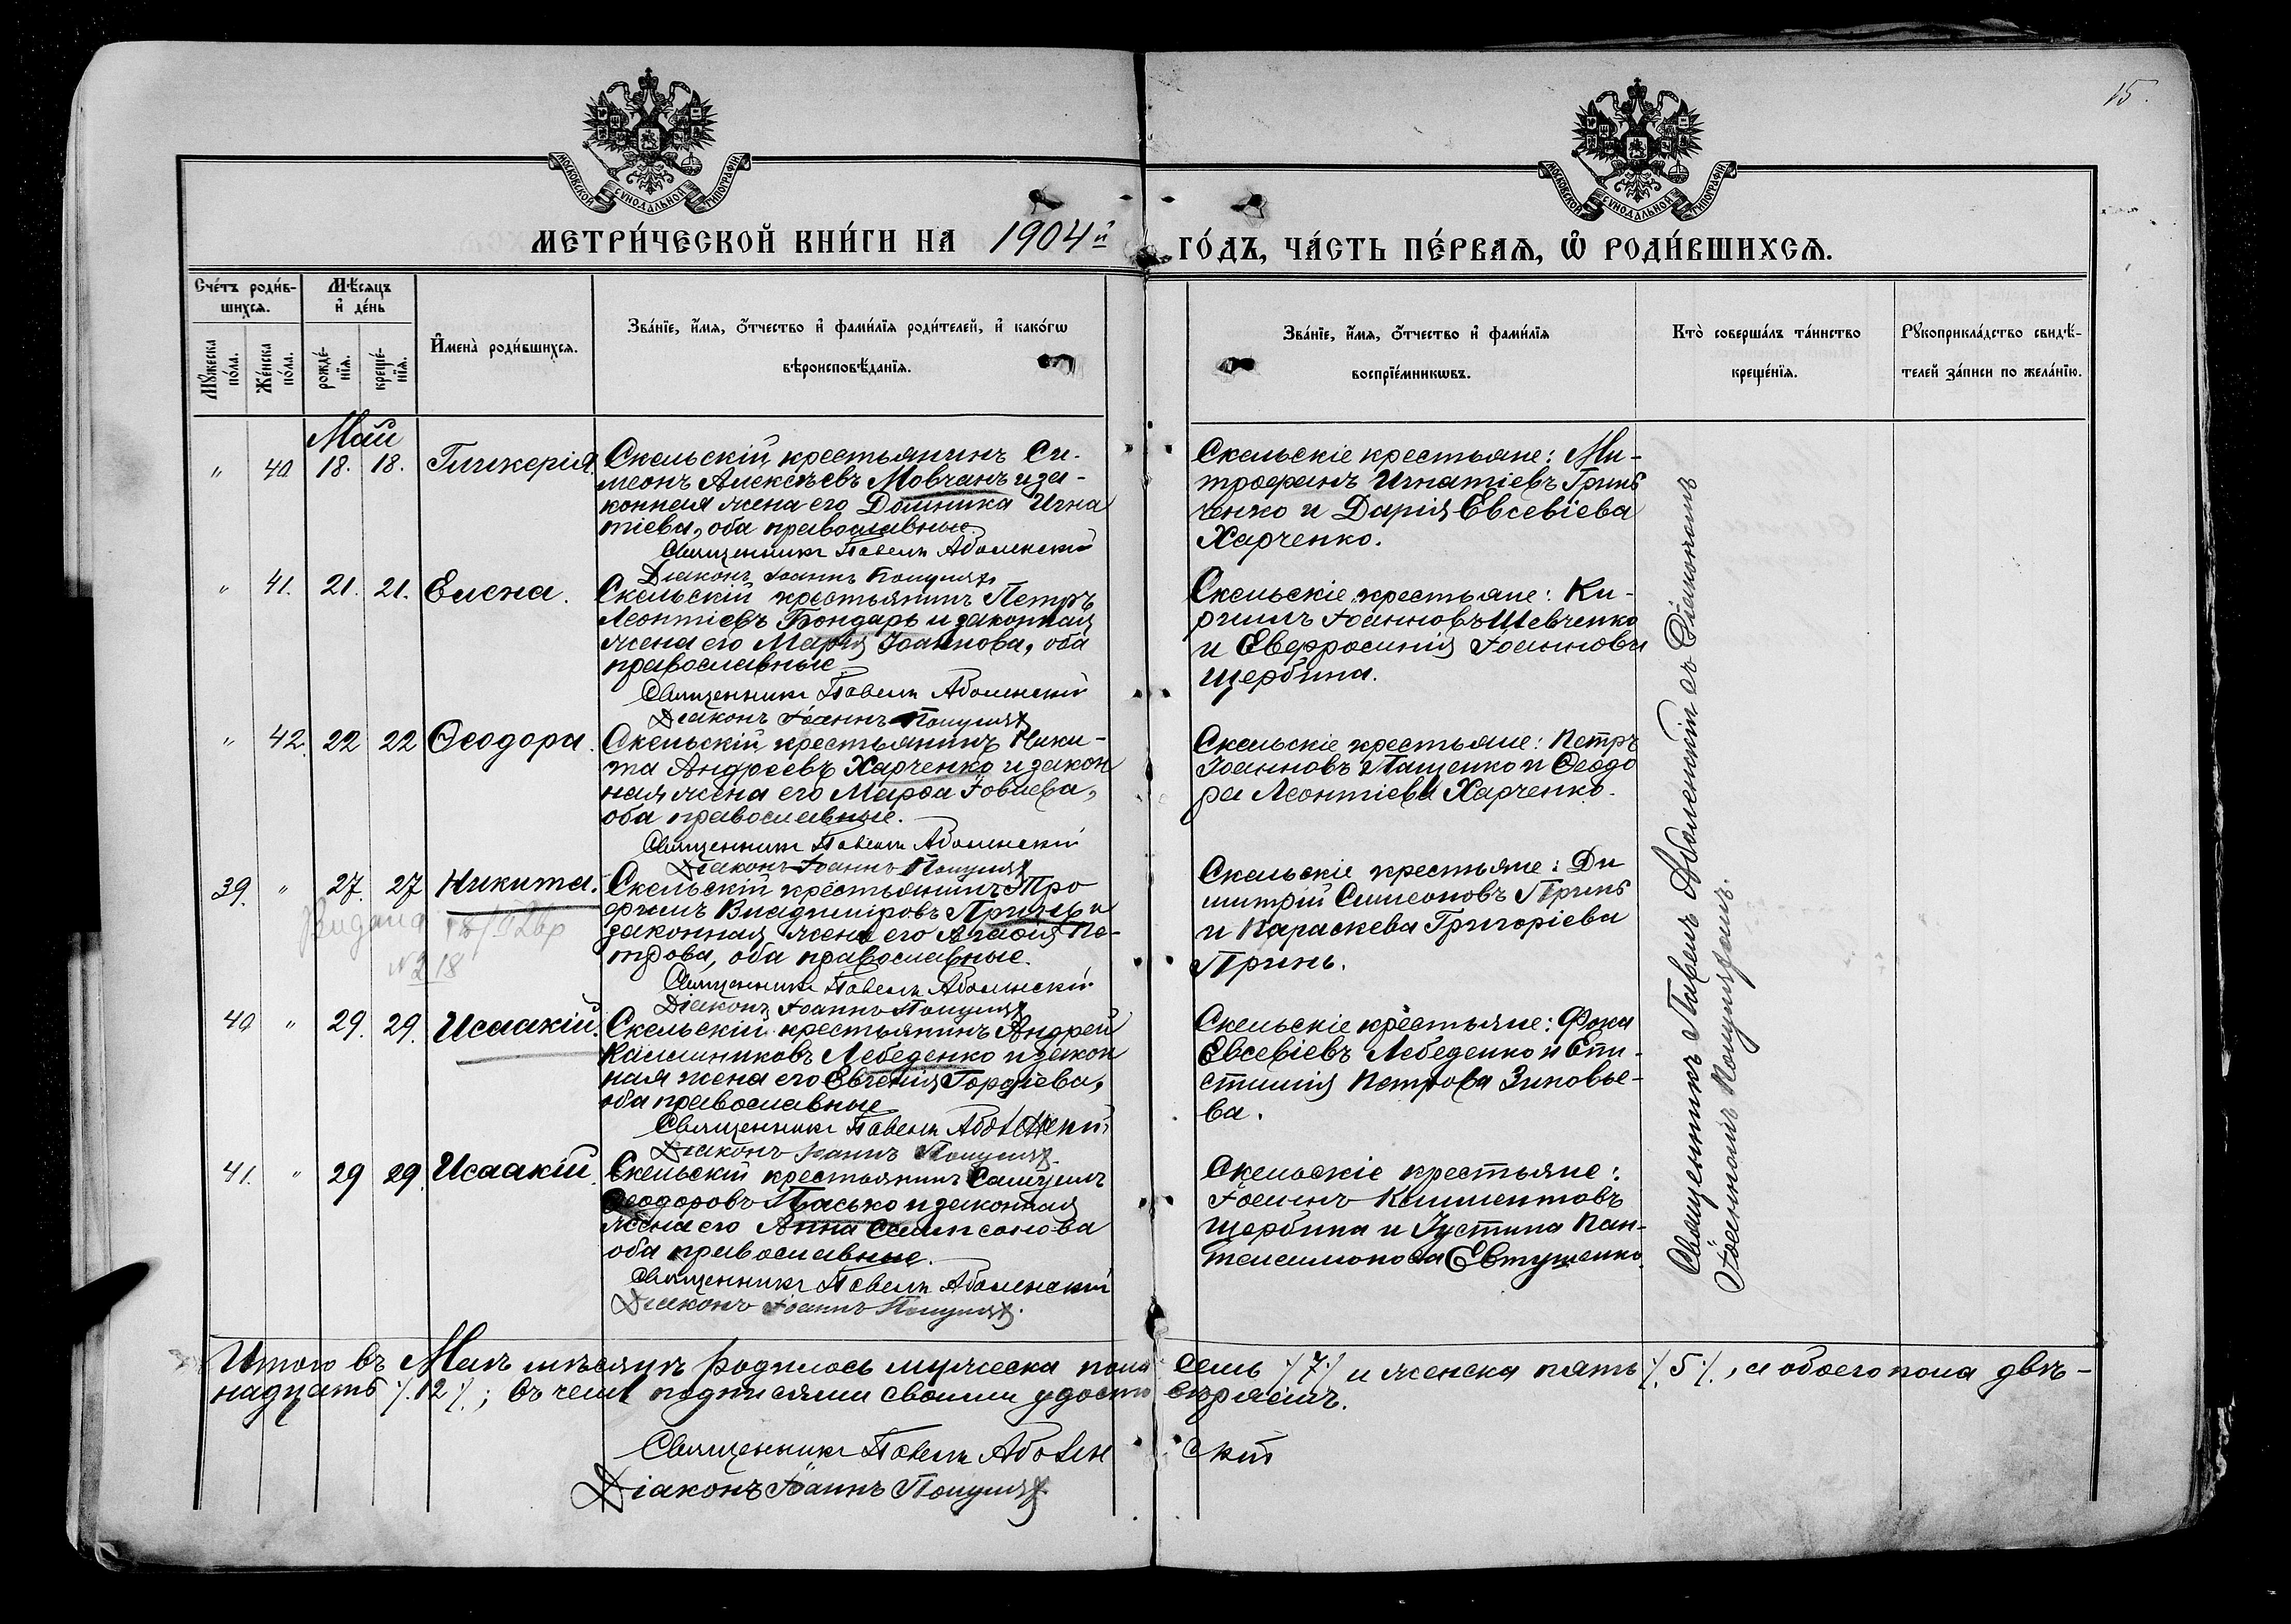 15.
МОСКОВСКОЙ СѴНОДАЛЬНОЙ ТИПОГРАФІИ
МОСКОВСКОЙ СѴНОДАЛЬНОЙ ТИПОГРАФІИ
МЕТРИ́ЧЕСКОЙ КНИ́ГИ НА 1904й ГО́ДЪ, ЧА́СТЬ ПЕ́РВАѦ, Ѽ РОДИ́ВШИХСѦ.
Сче́тъ роди́в-
шихсѧ.
Мѣ́сѧцъ
и҆ де́нь
Мꙋ́жеска
по́ла.
Же́нска
по́ла.
рожде́-
нїѧ.
креще́-
нїѧ.
И҆мена̀ роди́вшихсѧ.
Зва́нїе, и҆́мѧ, ѻ҆́тчество и҆ фами́лїѧ роди́телей, и҆ како́гѡ
вѣроисповѣ́данїѧ.
Зва́нїе, и҆́мѧ, ѻ҆́тчество и҆ фами́лїѧ
воспрїе́мникѡвъ.
Кто̀ соверша́лъ та́инство
креще́нїѧ.
Рꙋкоприкла́дство свидѣ́-
телей за́писи по жела́нїю.
Май
" 40 18. 18. Гликерія.
Скельскій крестьянинъ Си-
меонъ Алексѣевъ Мовчанъ и за-
конная жена его Домника Игна
тіева, оба православные.
Священникъ Павелъ Аболенскій
Діаконъ Іоаннъ
Скельскіе крестьяне: Ми-
трофанъ Игнатіевъ Гринь
ченко и Дарія Евсевіева
Харченко.
" 41. 21. 21. Елена.
Скельскій крестьянинъ Петръ
Леонтіевъ Бондарь и законная
жена его Марія Іоаннова, оба
православные
Священникъ Павелъ Аболенскій
Діаконъ Іоаннъ
Скельскіе крестьяне: Ки-
риллъ Іоанновъ Шевченко
и Евфросинія Іоаннова
Щербина.
" 42. 22 22 Ѳеодора.
Скельскій крестьянинъ Ники-
та Андреевъ Харченко и закон
ная жена его Марѳа Іовлева,
оба православные.
Священникъ Павелъ Аболенскій
Діаконъ Іоаннъ
Скельскіе крестьяне: Петръ
Іоанновъ Пащенко и Ѳеодо
ра Леонтіева Харченко.
39. " 27. 27 Никита.
Видана
№ 218
Скельскій крестьянинъ Тро
фимъ Владиміровъ Гринь и
законная жена его Агаѳія Пе-
трова, оба православные.
Священникъ Павелъ Аболенскій
Діаконъ Іоаннъ
Скельскіе крестьяне: Ди
митрій Симеоновъ Гринь
и Параскева Григоріева
Гринь.
40 " 29. 29. Исаакій.
Скельскій крестьянинъ Андрей
Каллиниковъ Лебеденко и закон
ная жена его Евгенія Гордіева,
оба православные
Священникъ Павелъ Аболенскій
Діаконъ Іоаннъ
Скельскіе крестьяне: Фока
Евсевіевъ Лебеденко и Епи-
стимія Петрова Зиновье-
ва.
41. " 29 29. Исаакій.
Скельскій крестьянинъ Самуилъ
Ѳеодоровъ Пасько и законная
жена его Анна Сампсонова
оба православные.
Священникъ Павелъ Аболенскій
Діаконъ Іоаннъ
Скельскіе крестьяне:
Іоаннъ Климентовъ
Щербина и Іустина Пан-
телеимонова Евтушенко.
Священникъ Павелъ Аболенскій съ Діакономъ
Іоанномъ
Итого въ Маѣ мѣсяцѣ родилось мужеска пола семь /7/ и женска пять /5/, а обоего пола двѣ-
надцать /12/; въ чемъ подписями своими удостовѣряемъ.
Священникъ Павелъ Аболенскій
Діаконъ Іоаннъ